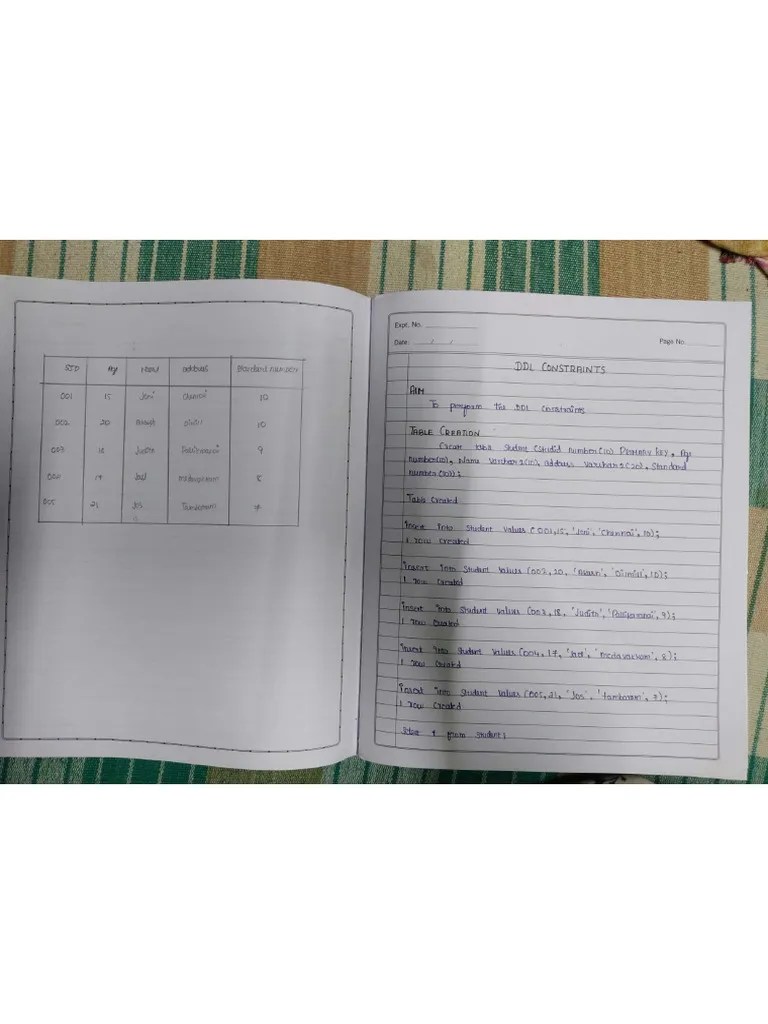 STD Age Name address Standard number
001 15 Joni Chennai 10
002 20 10
003 18 Judith 9
004 17 8
005 21 Jos Tambaram
Expt. No.
Date: / /
Page No.
DDL CONSTRAINTS
AIM
To perform the DDL constraints
TABLE CREATION
Create table student (studid number(10) Primary key, Age
number(10), Name varchar2(10), address varchar2(20), Standard
number(10));
Table Created
Insert into student values (001,15, 'Joni', 'Chennai', 10);
1 row created
Insert into student values (002, 20, 10);
1 row created
Insert into student values (003, 18, 'Judith', 9);
1 row created
Insert into student values (004, 17, 'medavakkam', 8);
1 row created
Insert into student values (005, 21, 'Jos', 'Tambaram',
1 row created
from student;